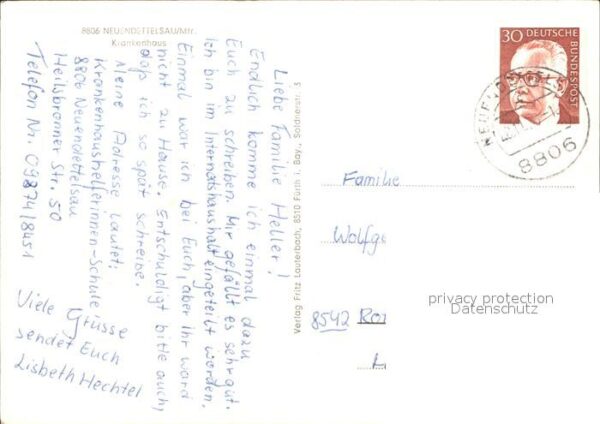 8806 NEUENDETTELSAU/Mfr.
Krankenhaus
Liebe Familie Heller!
Endlich komme ich einmal dazu
Euch zu schreiben. Mir gefällt es sehr gut.
Ich bin im Internatshaushalt eingeteilt worden.
Einmal war ich bei Euch, aber Ihr ward
nicht zu Hause. Entschuldigt bitte auch,
daß ich so spät schreibe.
Meine Adresse lautet:
Krankenhaushelferinnen-Schule
8806 Neuendettelsau
Heilsbronner Str. 50
Telefon Nr. 09874/8451
Viele Grüsse
sendet Euch
Lisbeth Hechtel
Verlag Fritz Lauterbach, 8510 Fürth i. Bay., Soldnerstr. 3
30 DEUTSCHE
BUNDESPOST
8806
Familie
Wolfg
8542
privacy protection
Datenschutz